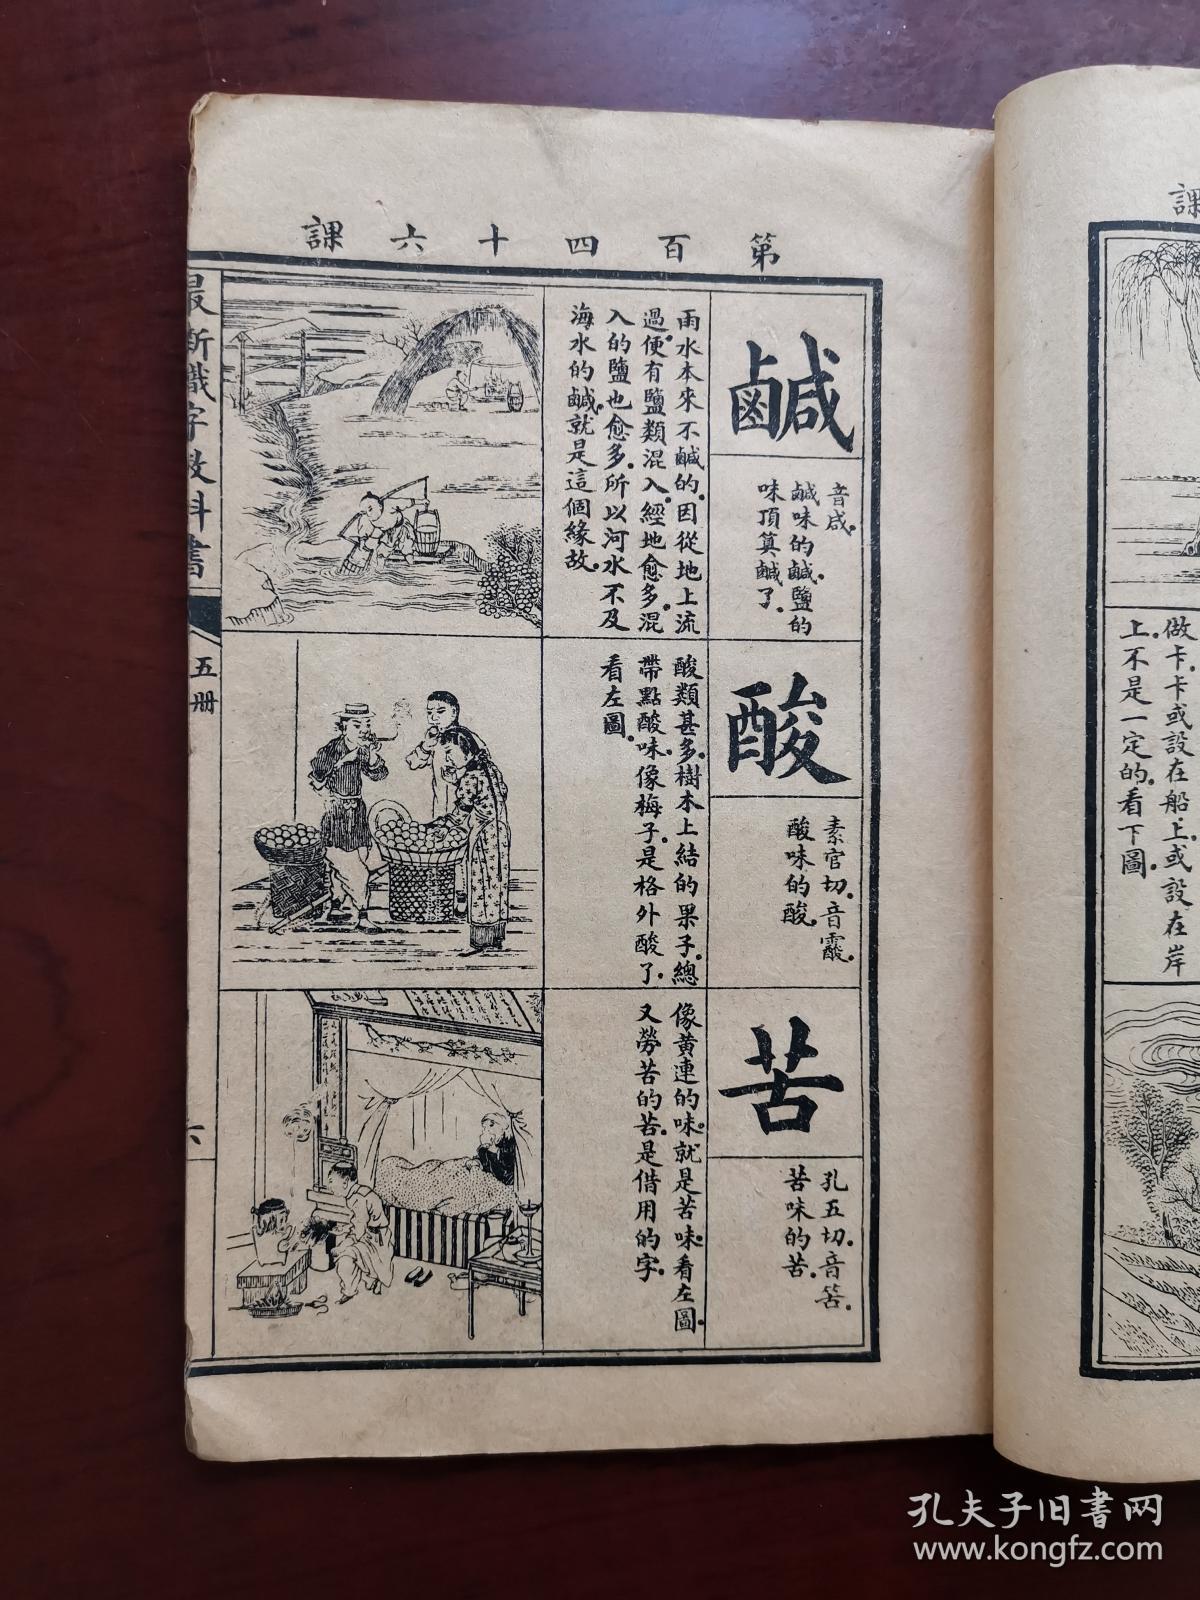 課
做卡.卡或設在船上.或設在岸
上.不是一定的.看下圖.
第百四十六課
鹹
音咸.
鹹味的鹹.鹽的
味頂算鹹了.
雨水本來不鹹的.因從地上流
過.便有鹽類混入.經地愈多.混
入的鹽也愈多.所以河水不及
海水的鹹.就是這個緣故.
酸
素官切.音霰.
酸味的酸.
酸類甚多.樹木上結的果子.總
帶點酸味.像梅子.是格外酸了.
看左圖.
苦
孔五切.音筈.
苦味的苦.
像黄連的味.就是苦味.看左圖.
又勞苦的苦.是借用的字.
最新識字教科書
五册
六
孔夫子旧書网
www.kongfz.com